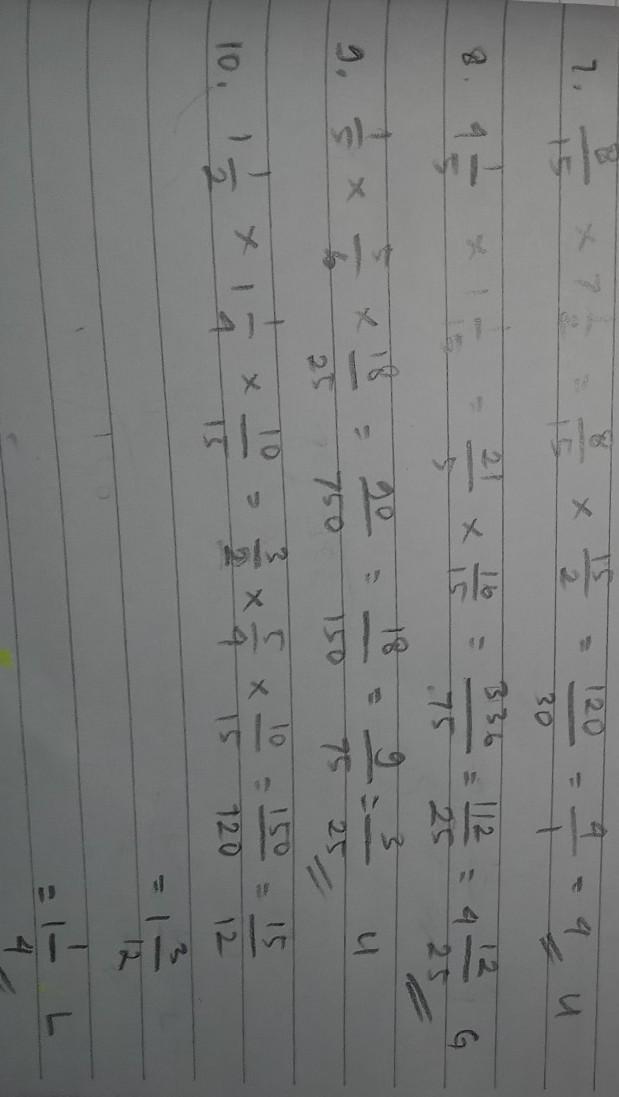 7. 8/15 × 7 1/2 = 8/15 × 15/2 = 120/30 = 4/1 = 4 U
8. 4 1/5 × 1 1/15 = 21/5 × 16/15 = 336/75 = 112/25 = 4 12/25 G
9. 1/5 × 5/6 × 18/25 = 90/750 = 18/150 = 9/75 = 3/25 U
10. 1 1/2 × 1 1/4 × 10/15 = 3/2 × 5/4 × 10/15 = 150/120 = 15/12
= 1 3/12
= 1 1/4 L